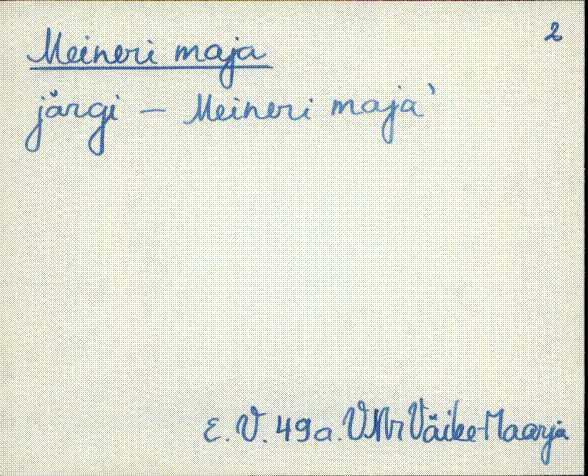 2
Meineri maja
järgi – Meineri maja'
E. V. 49a. VMr Väike-Maarja